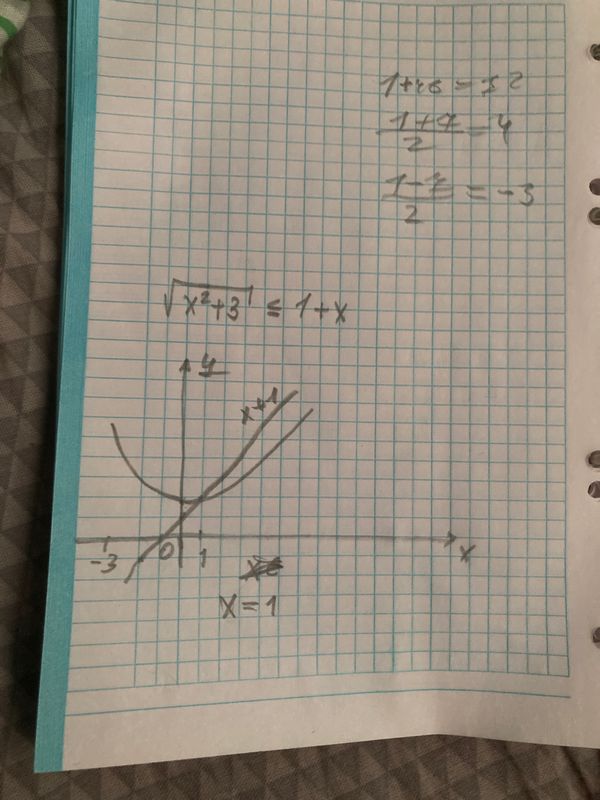 1+48=7²
(1+7)/2=4
(1-7)/2=-3
√(x²+3) ≤ 1+x
y
x+1
-3 0 1 x
x=1